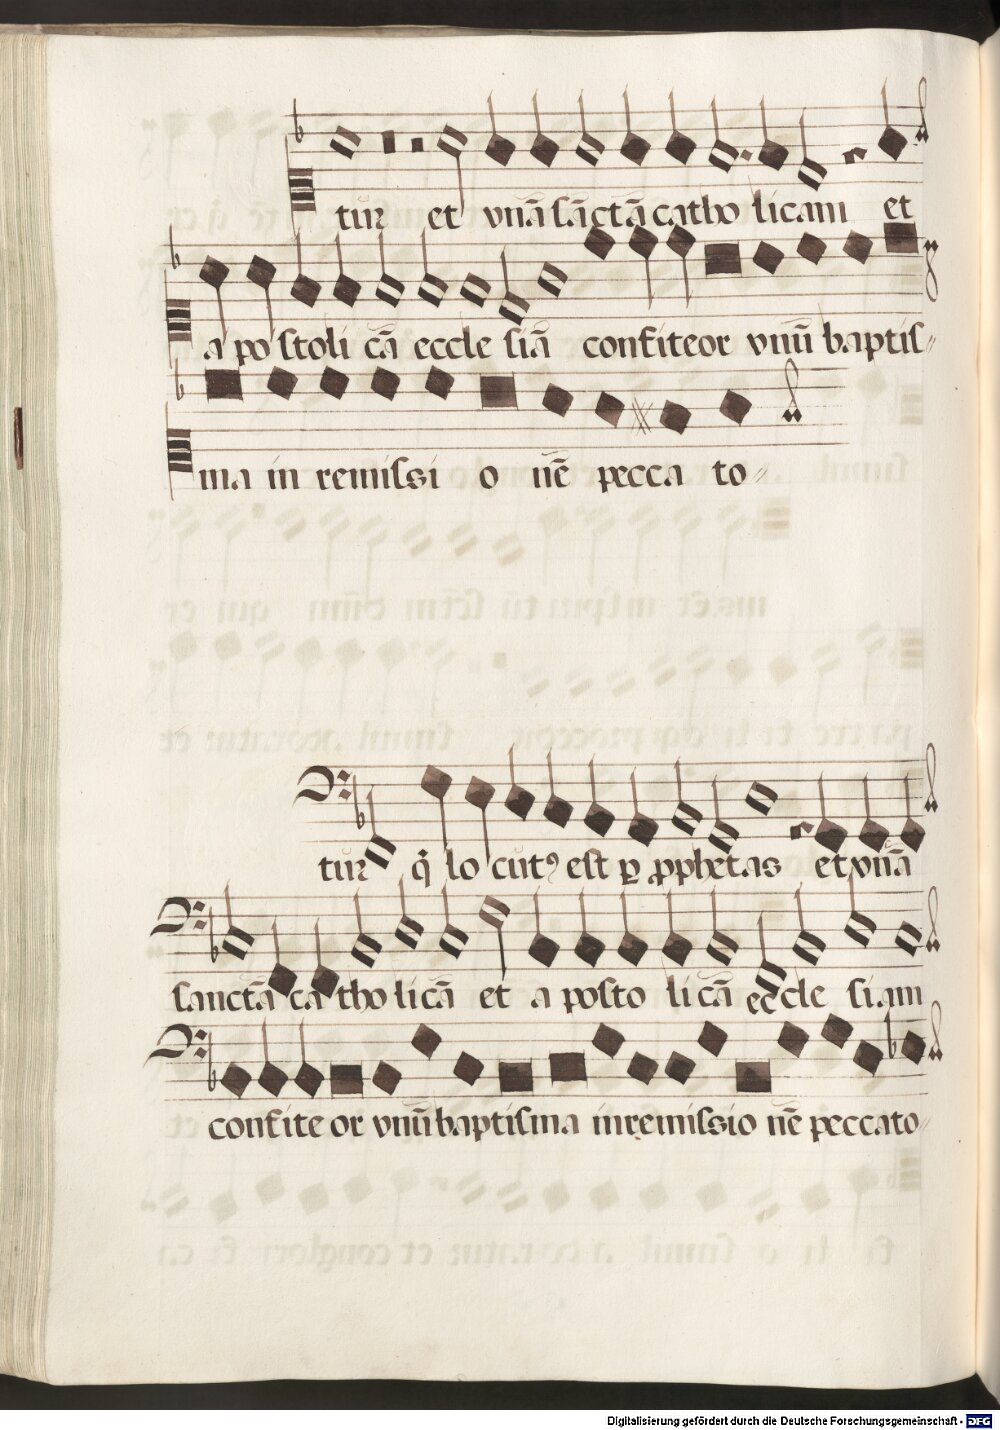 tur et vnā sāctā catho licam et
a po stoli cā eccle siā confiteor vnū baptis-
ma in remissi o nē pecca to-
tur q̇ lo cutꝰ est ꝑ ꝓphetas et vnā
sanctā ca tho licā et a posto li cā eccle siam
confite or vnū baptisma in remissio nē peccato-
Digitalisierung gefördert durch die Deutsche Forschungsgemeinschaft - DFG